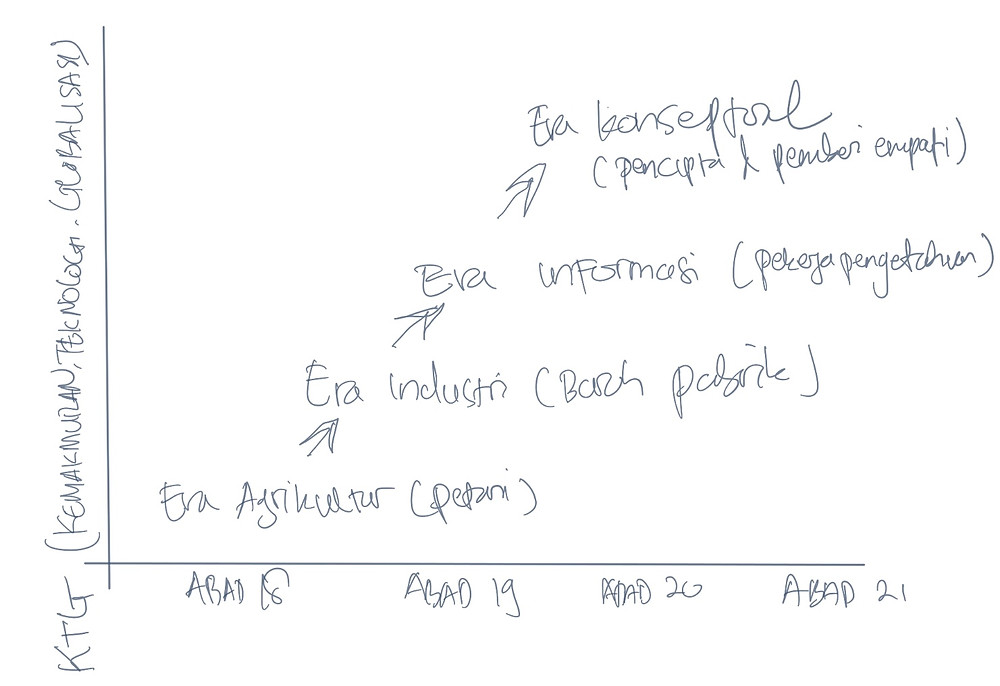 KTG (KEMAKMURAN, TEKNOLOGI, GLOBALISASI)
Era konseptual
(pencipta & pemberi empati)
Era informasi (pekerja pengetahuan)
Era industri (Buruh pabrik)
Era Agrikultur (petani)
ABAD 18 ABAD 19 ABAD 20 ABAD 21